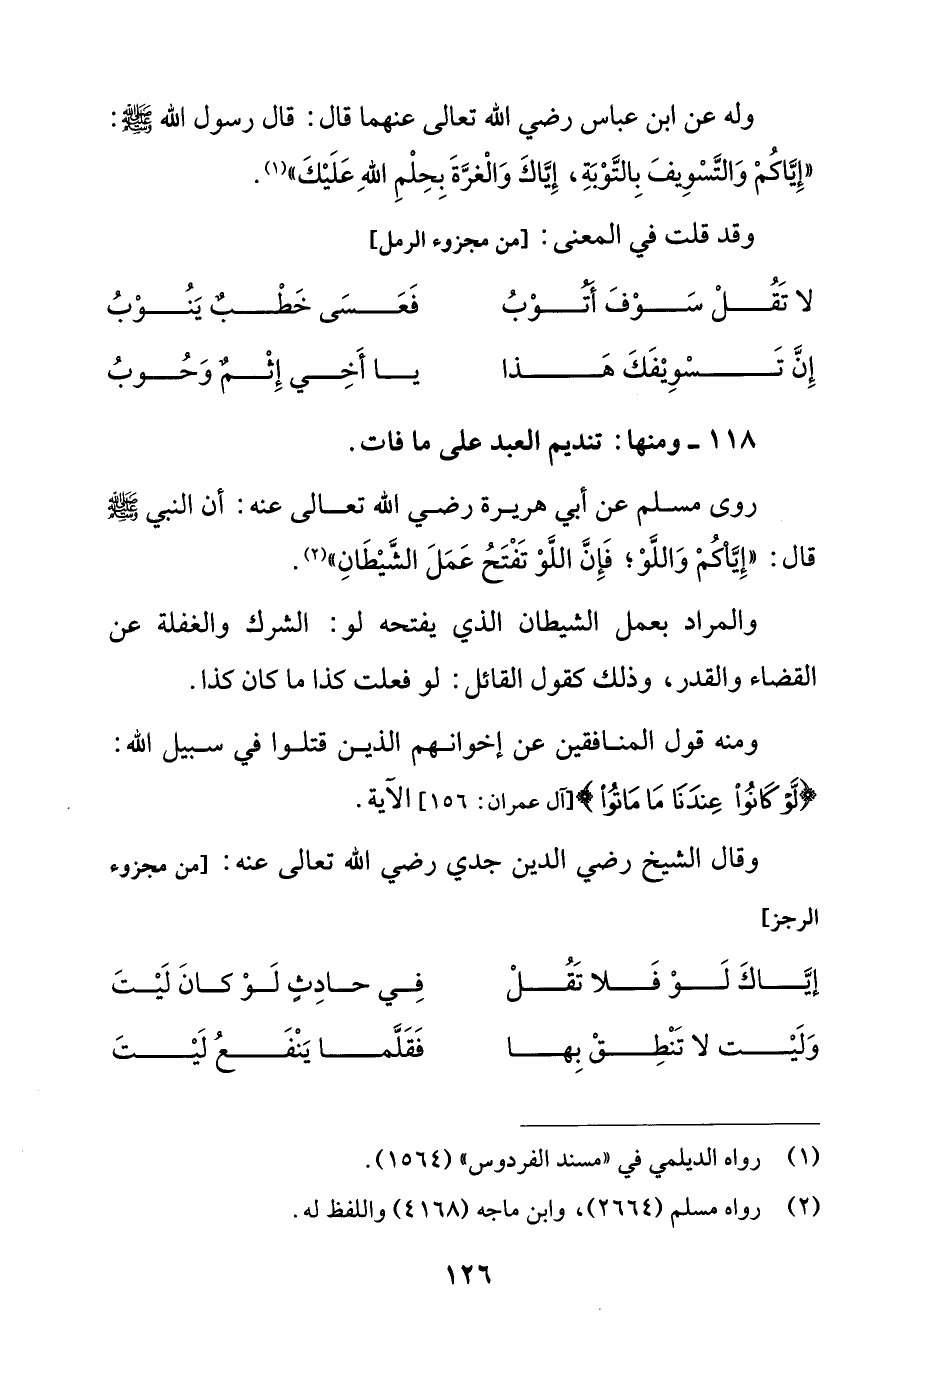 وله عن ابن عباس رضي الله تعالى عنهما قال: قال رسول الله ﷺ:
«إِيَّاكُمْ وَالتَّسْوِيفَ بِالتَّوْبَةِ، إِيَّاكَ وَالْغرَّةَ بِحِلْمِ اللهِ عَلَيْكَ»(١).
وقد قلت في المعنى: [من مجزوء الرمل]
لا تَقُلْ سَوْفَ أَتُوْبُ فَعَسَى خَطْبٌ يَنُوْبُ
إِنَّ تَسْوِيْفَكَ هَذا يا أَخِي إِثْمٌ وَحُوبُ
١١٨ ـ ومنها: تنديم العبد على ما فات.
روى مسلم عن أبي هريرة رضي الله تعالى عنه: أن النبي ﷺ
قال: «إِيَّاكُمْ وَاللَّوْ؛ فَإِنَّ اللَّوْ تَفْتَحُ عَمَلَ الشَّيْطَانِ»(٢).
والمراد بعمل الشيطان الذي يفتحه لو: الشرك والغفلة عن
القضاء والقدر، وذلك كقول القائل: لو فعلت كذا ما كان كذا.
ومنه قول المنافقين عن إخوانهم الذين قتلوا في سبيل الله:
﴿لَّوْ كَانُوا۟ عِندَنَا مَا مَاتُوا۟﴾[آل عمران: ١٥٦] الآية.
وقال الشيخ رضي الدين جدي رضي الله تعالى عنه: [من مجزوء
الرجز]
إيَّاكَ لَوْ فَلا تَقُلْ فِي حادِثٍ لَوْ كانَ لَيْتَ
وَلَيْت لا تَنْطِقْ بِها فَقَلَّما يَنْفَعُ لَيْتَ
(١) رواه الديلمي في «مسند الفردوس» (١٥٦٤).
(٢) رواه مسلم (٢٦٦٤)، وابن ماجه (٤١٦٨) واللفظ له.
١٢٦